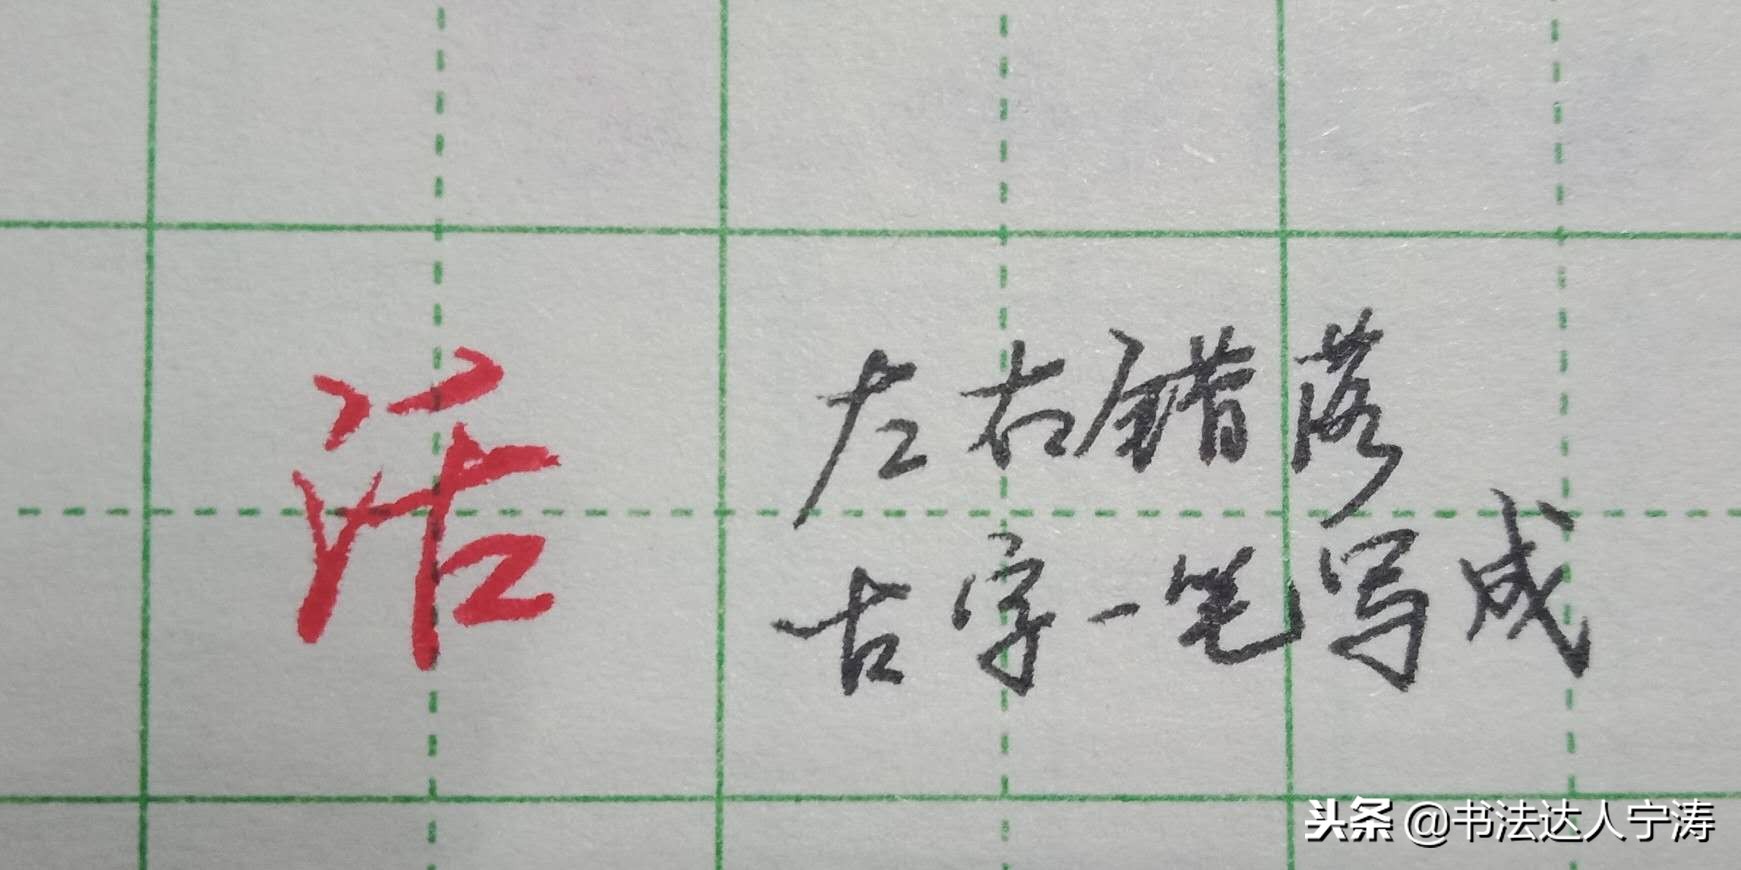 活
左右错落
古字一笔写成
头条 @书法达人宁涛